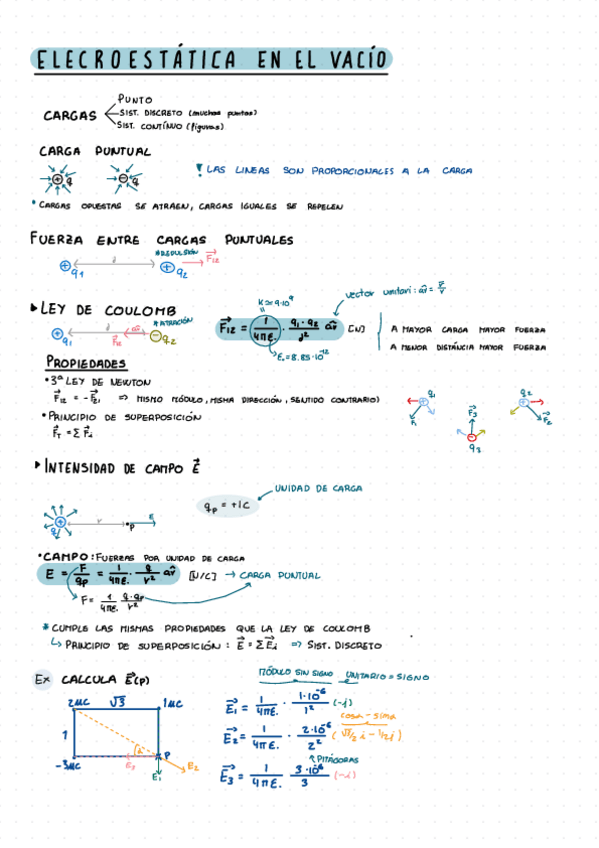 ELECROESTÁTICA EN EL VACÍO
PUNTO
CARGAS
SIST. DISCRETO (muchos puntos)
SIST. CONTÍNUO (figuras)
CARGA PUNTUAL
+ q
- q
! LAS LINEAS SON PROPORCIONALES A LA CARGA
• CARGAS OPUESTAS SE ATRAEN, CARGAS IGUALES SE REPELEN
FUERZA ENTRE CARGAS PUNTUALES
* REPULSIÓN
+ q1 d + q2 F12
▸ LEY DE COULOMB
* ATRACIÓN
+ q1 d F12 âr - q2
K = 9·10⁹
vector unitari: âr = r/r
F12 = 1/4πε. · q1·q2/d² âr [N]
ε. = 8.85·10⁻¹²
A MAYOR CARGA MAYOR FUERZA
A MENOR DISTÁNCIA MAYOR FUERZA
PROPIEDADES
• 3ª LEY DE NEWTON
F12 = -F21 => MISMO MÓDULO, MISMA DIRECCIÓN, SENTIDO CONTRARIO)
• PRINCIPIO DE SUPERPOSICIÓN
FT = Σ Fi
q1 F1
q2 F2
F3 q3
▸ INTENSIDAD DE CAMPO E
UNIDAD DE CARGA
qp = +1C
+ q r P E
• CAMPO: FUERZAS POR UNIDAD DE CARGA
E = F/qp = 1/4πε. · q/r² âr [N/C] → CARGA PUNTUAL
F = 1/4πε. q·qp/r²
* CUMPLE LAS MISMAS PROPIEDADES QUE LA LEY DE COULOMB
↳ PRINCIPIO DE SUPERPOSICIÓN : E = Σ Ei => SIST. DISCRETO
Ex CALCULA E(P)
MÓDULO SIN SIGNO UNITARIO = SIGNO
2μC √3 1μC
1
-3μC E3 P E1 E2
E1 = 1/4πε. · 1·10⁻⁶/1² (-j)
cosα - sinα
E2 = 1/4πε. · 2·10⁻⁶/2² (√3/2 i - 1/2 j)
↑ PITÁGORAS
E3 = 1/4πε. 3·10⁻⁶/3 (-i)